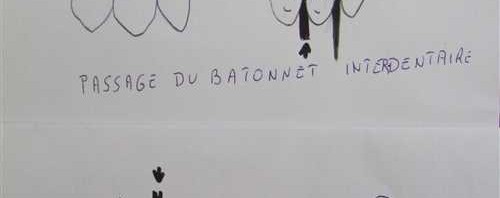 PASSAGE DU BATONNET INTERDENTAIRE